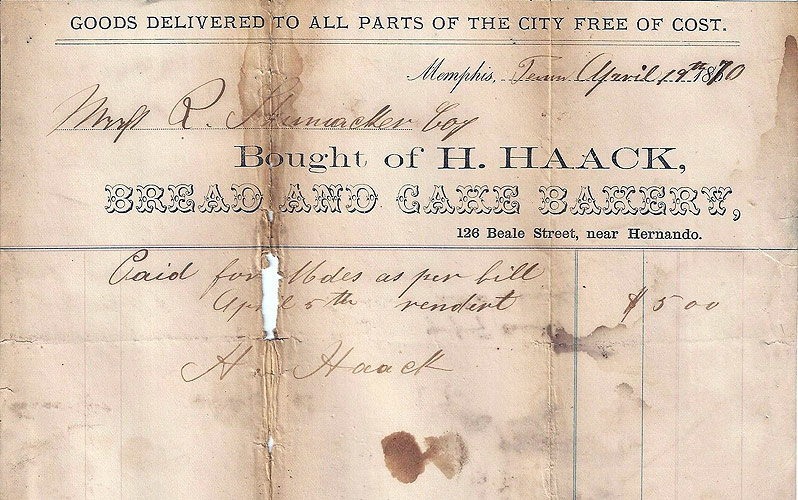 GOODS DELIVERED TO ALL PARTS OF THE CITY FREE OF COST.
Memphis, Tenn. April 19th 1870
R. Shumacker Coy
Bought of H. HAACK,
BREAD AND CAKE BAKERY,
126 Beale Street, near Hernando.
Paid for Mdes as per bill
April 5th rendert $ 5 00
H. Haack